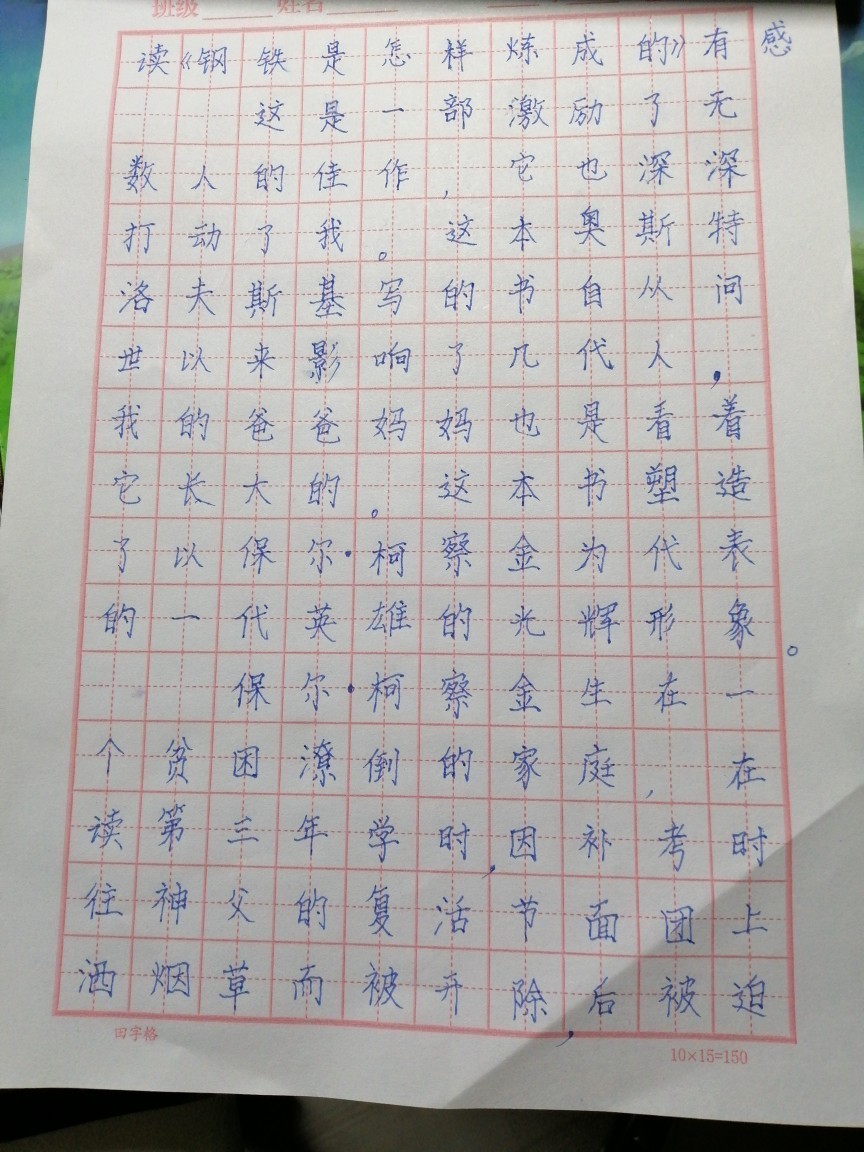 班级 姓名
读《钢铁是怎样炼成的》有感
这是一部激励了无
数人的佳作，它也深深
打动了我。这本奥斯特
洛夫斯基写的书自从问
世以来影响了几代人，
我的爸爸妈妈也是看着
它长大的。这本书塑造
了以保尔·柯察金为代表
的一代英雄的光辉形象。
保尔·柯察金生在一
个贫困潦倒的家庭，在
读第三年学时，因补考时
往神父的复活节面团上
洒烟草而被开除，后被迫
田字格
10×15=150